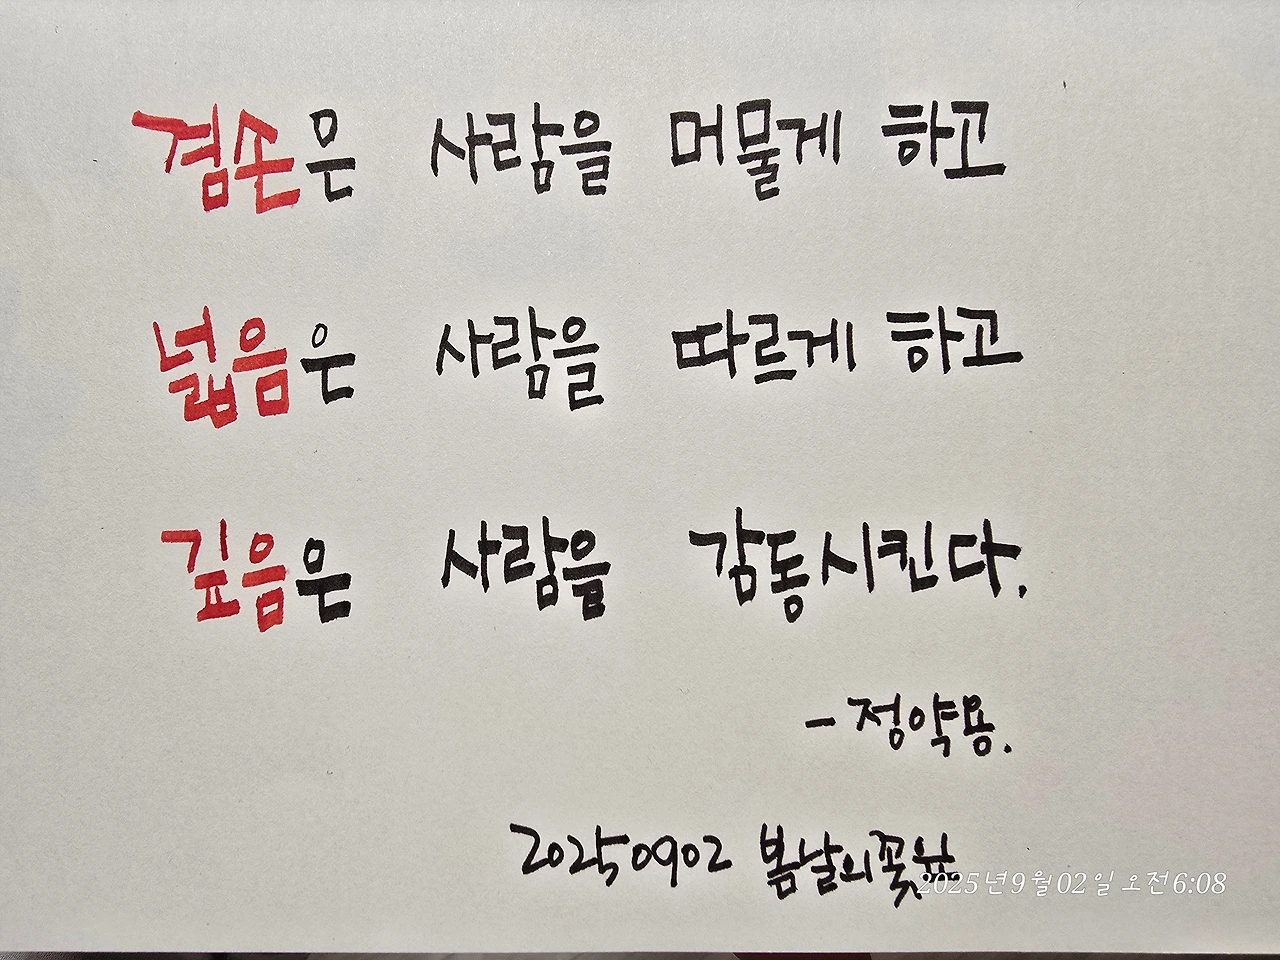 겸손은 사람을 머물게 하고
넓음은 사람을 따르게 하고
깊음은 사람을 감동시킨다.
- 정약용.
20250902 봄날의꽃잎
2025년9월02일 오전6:08